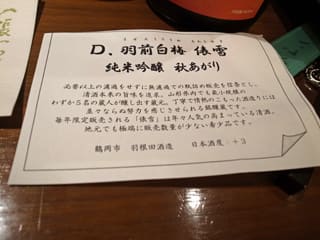 D、羽前白梅 俵雪
純米吟醸 秋あがり
必要以上の濾過をせずに無濾過での瓶詰め販売を信条とし、
清酒本来の旨味を追求。山形県内でも最小規模の
わずか5名の蔵人が醸し出す蔵元。丁寧で情熱のこもった酒造りには
並々ならぬ努力を感じさせられる銘醸蔵です。
毎年限定販売される「俵雪」は年々人気の高まっている清酒。
地元でも極端に販売数量が少ない希少品です。
鶴岡市 羽根田酒造 日本酒度:+3